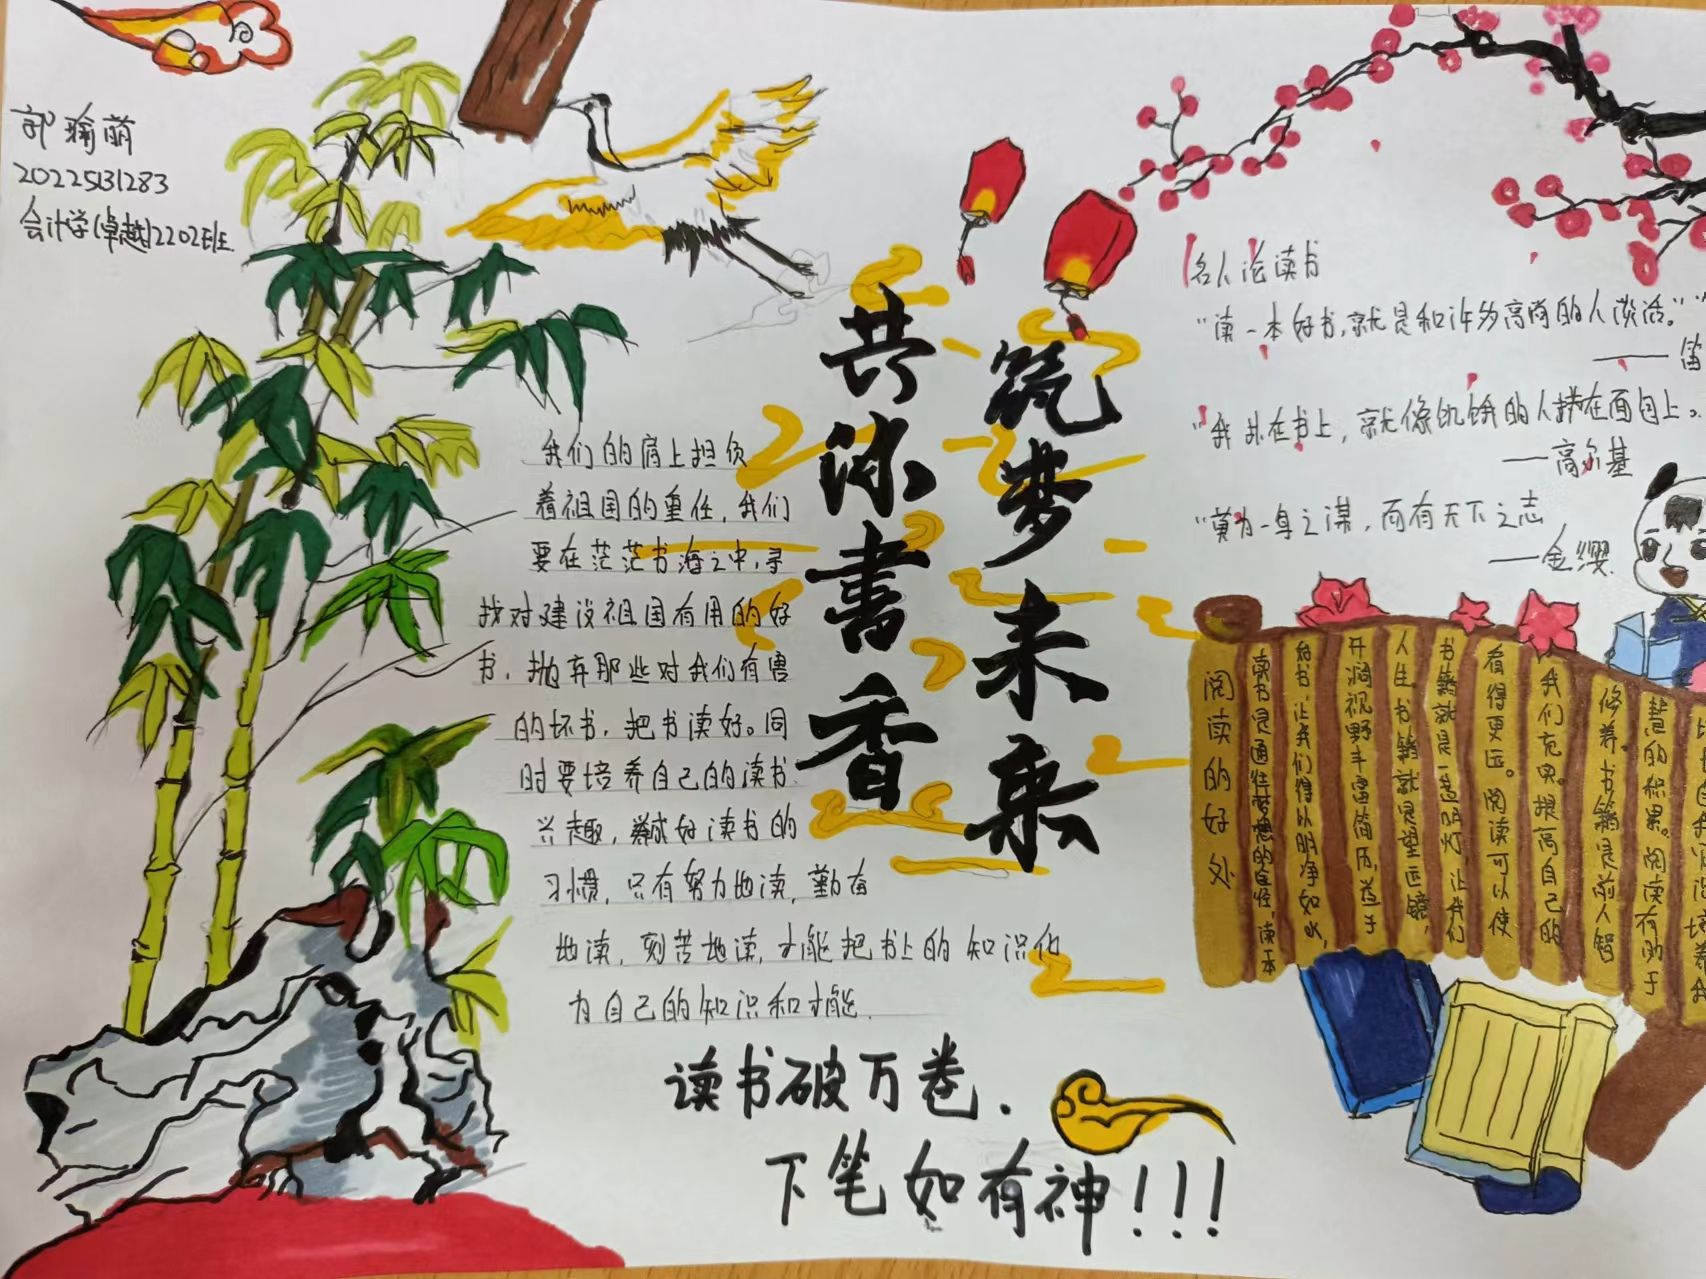 郭瑜萌
20225131283
会计学(卓越)2202班
共沐書香
筑梦未来
我们的肩上担负
着祖国的重任，我们
要在茫茫书海之中，寻
找对建设祖国有用的好
书，抛弃那些对我们有害
的坏书，把书读好。同
时要培养自己的读书
兴趣，养成好读书的
习惯，只有努力地读，勤奋
地读，刻苦地读，才能把书上的知识化
为自己的知识和才能.
读书破万卷.
下笔如有神!!!
名人论读书
"读一本好书，就是和许多高尚的人谈话。"
——笛
"我扑在书上，就像饥饿的人扑在面包上。
——高尔基
"莫为一身之谋，而有天下之志
——金缨
阅读的好处
读书是通往梦想的途径，读本
好书，让我们得以明净如水，
开阔视野丰富阅历，益于
人生，书籍就是望远镜，
书籍就是一盏明灯，让我们
看得更远。阅读可以使
我们充实。提高自己的
修养。书籍是前人智
慧的积累。阅读有助于